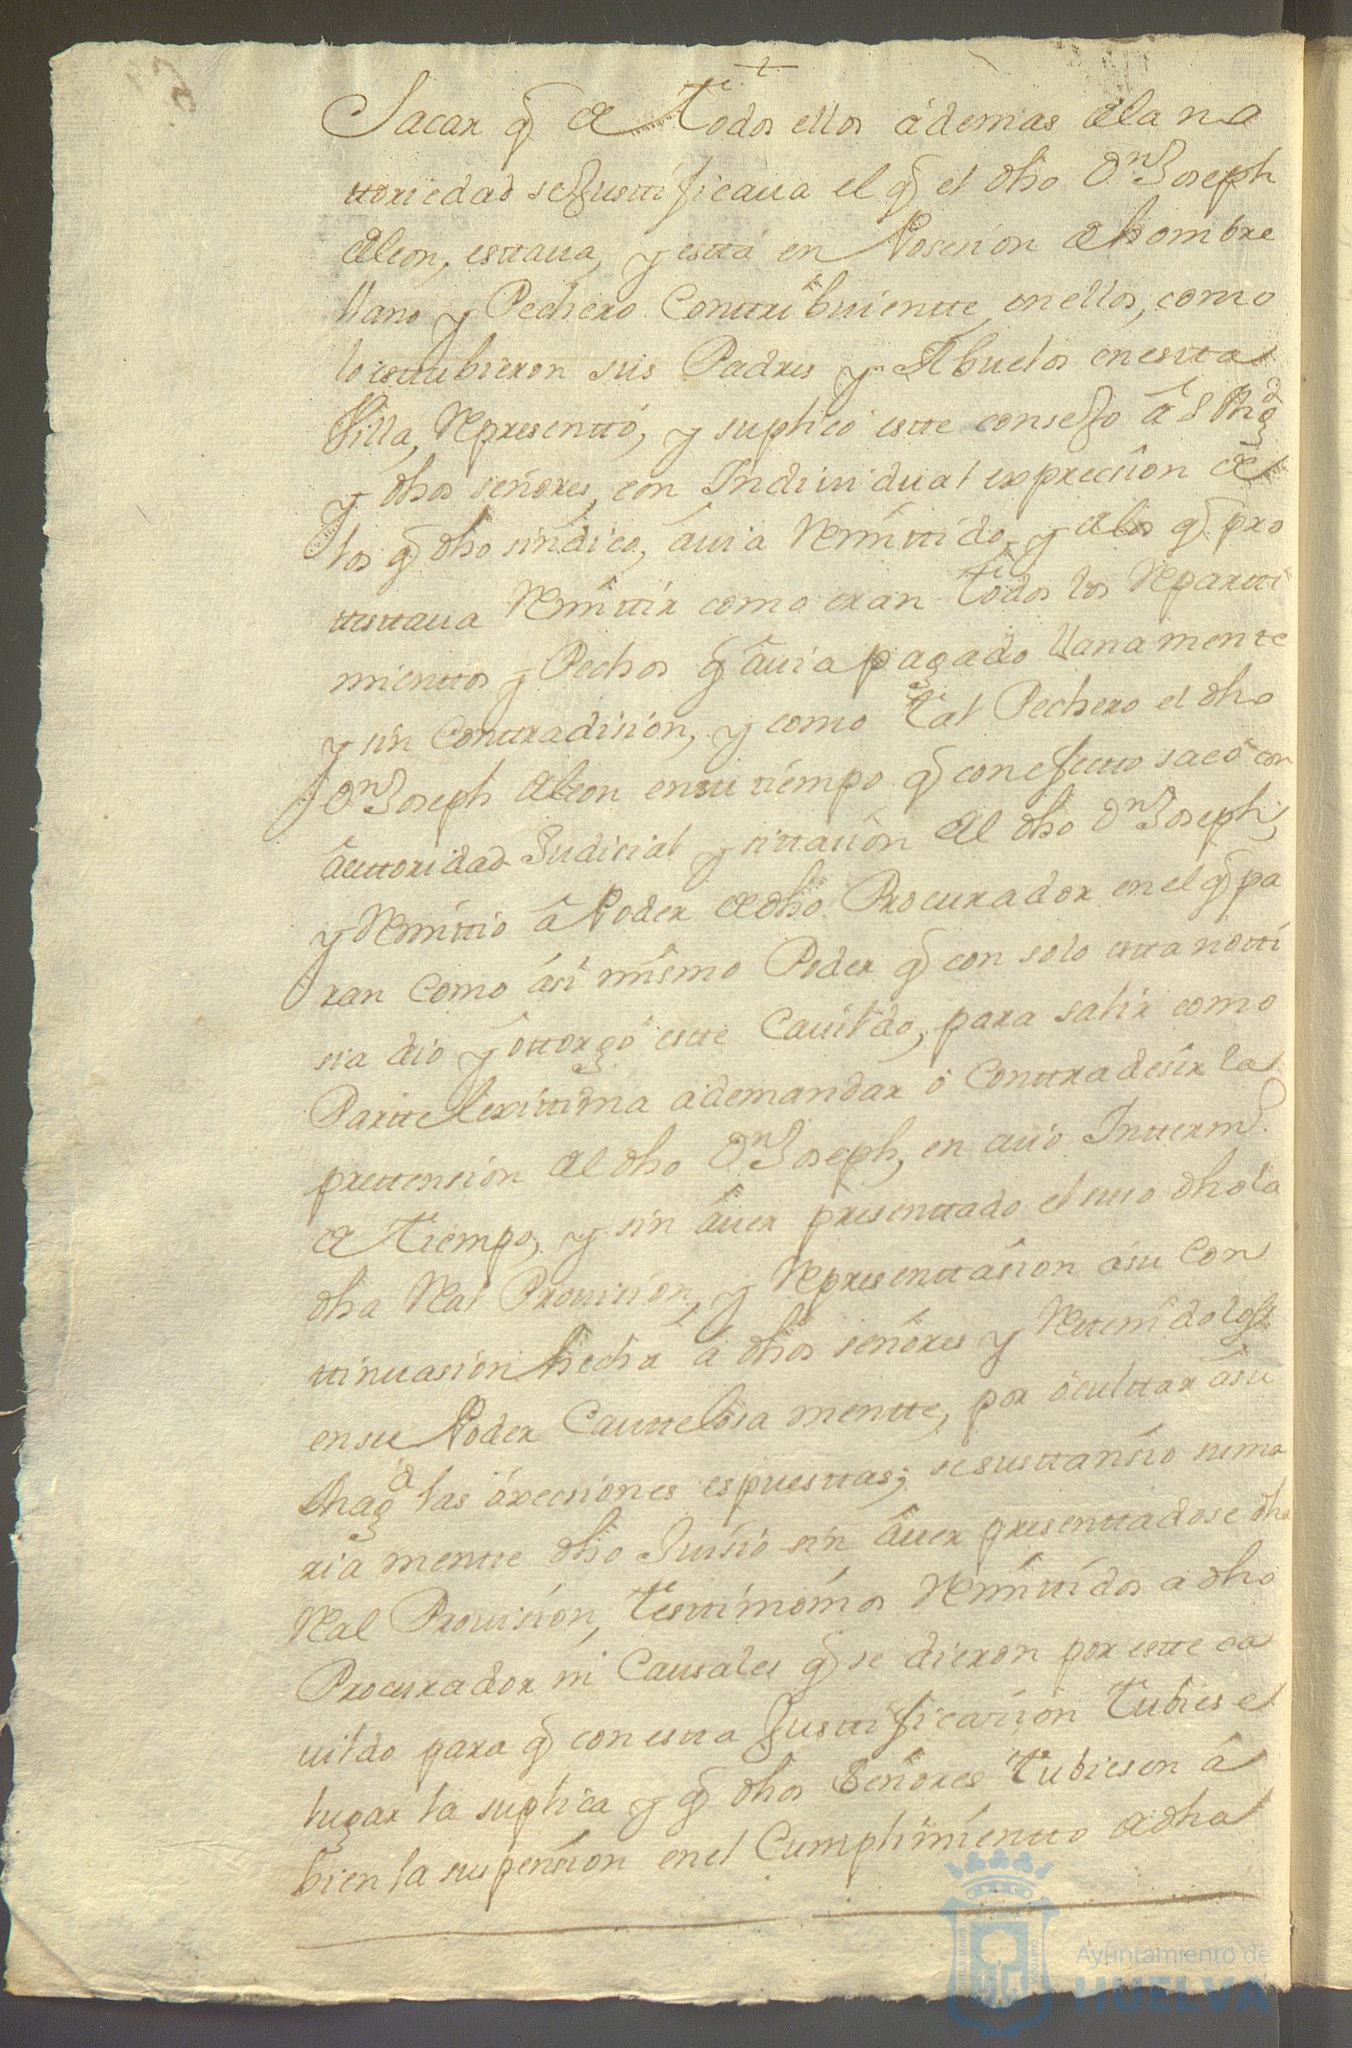 Sacar q̄ de Todos ellos ademas dela no
ttoriedad se Justtificaua el q̄ el dho Dn Joseph
deleon, esttaua, y estta en Posesion de hombre
llano y Pechero Conttribuientte en ellos, como
lo esttubieron sus Padres y Abuelos en estta
Villa, Representtó, y suplicó este consejo á S Mgd
y dhos señores, con Indiuidual exprecion de
los q̄ dho sindico, auia Remittido, y de los q̄ pro
ttesttaua Remittir como eran Todos los Repartti
mienttos y Pechos q̄ auia pagado llanamente
y sin Conttradision, y como Tal Pechero el dho
Dn Joseph deleon en su tiempo q̄ con efectto sacó con
auttoridad Judicial y sittacion del dho Dn Joseph,
y Remitio á Poder de dho Procurador en el q̄ pa
ran como asi mismo Poder q̄ con solo estta notti
sia dio y ottorgó estte Cauildo, para salir como
Partte lexittima a demandar ó Conttradesir la
prettension del dho Dn Joseph, en cuio Intterm.o
de Tiempo, y sin auer presenttado el suso dho la
dha Real Prouision, y Representtasion á su Con
ttinuasion hecha á dhos señores y Rettenidolos
en su Poder Cauttelosa mentte, por oculttar á su
Magd las execiones espuesttas; se susttansio suma
ria mentte dho Juisio sin auer presenttadose dha
Real Prouision, Testtimonios Remittidos a dho
Procurador ni Causales q̄ se dieron por estte ca
uildo para q̄ con estta Justtificacion Tubiese
lugar la suplica y q̄ dhos Señores Tubiesen á
bien la supension en el Cumplimientto de dha
Ayuntamiento de
HUELVA